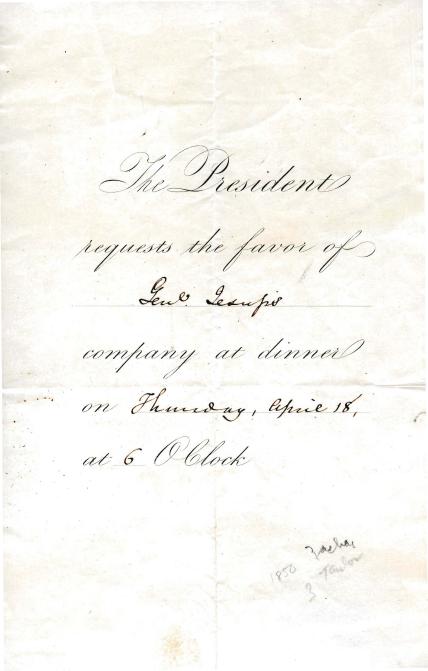 The President
requests the favor of
Genl. Jesup's
company at dinner
on Thursday, April 18,
at 6 O'Clock
Zachay
1850 Taylor
3